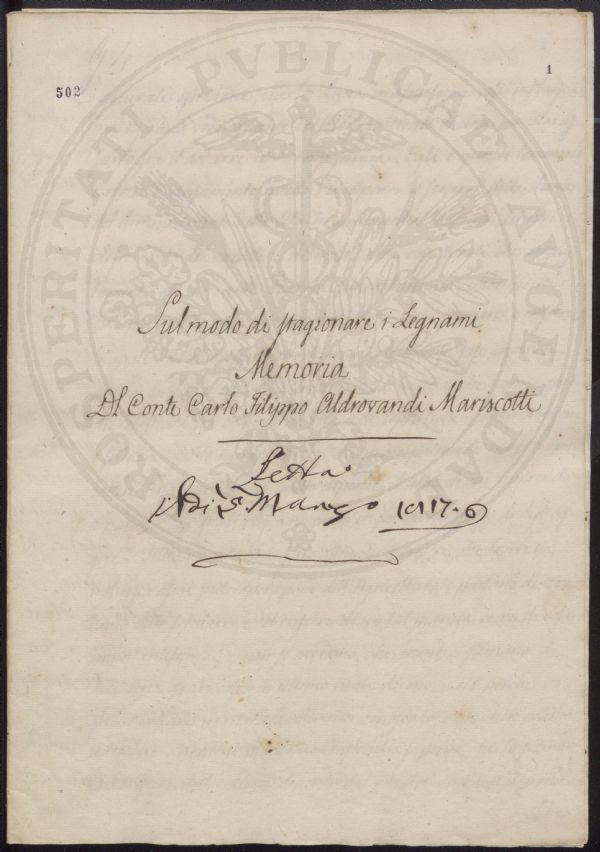 1
502
PROSPERITATI PVBLICAE AVGENDAE
Sul modo di stagionare i Legnami
Memoria
Del Conte Carlo Filippo Aldrovandi Mariscotti
Letta
Marzo